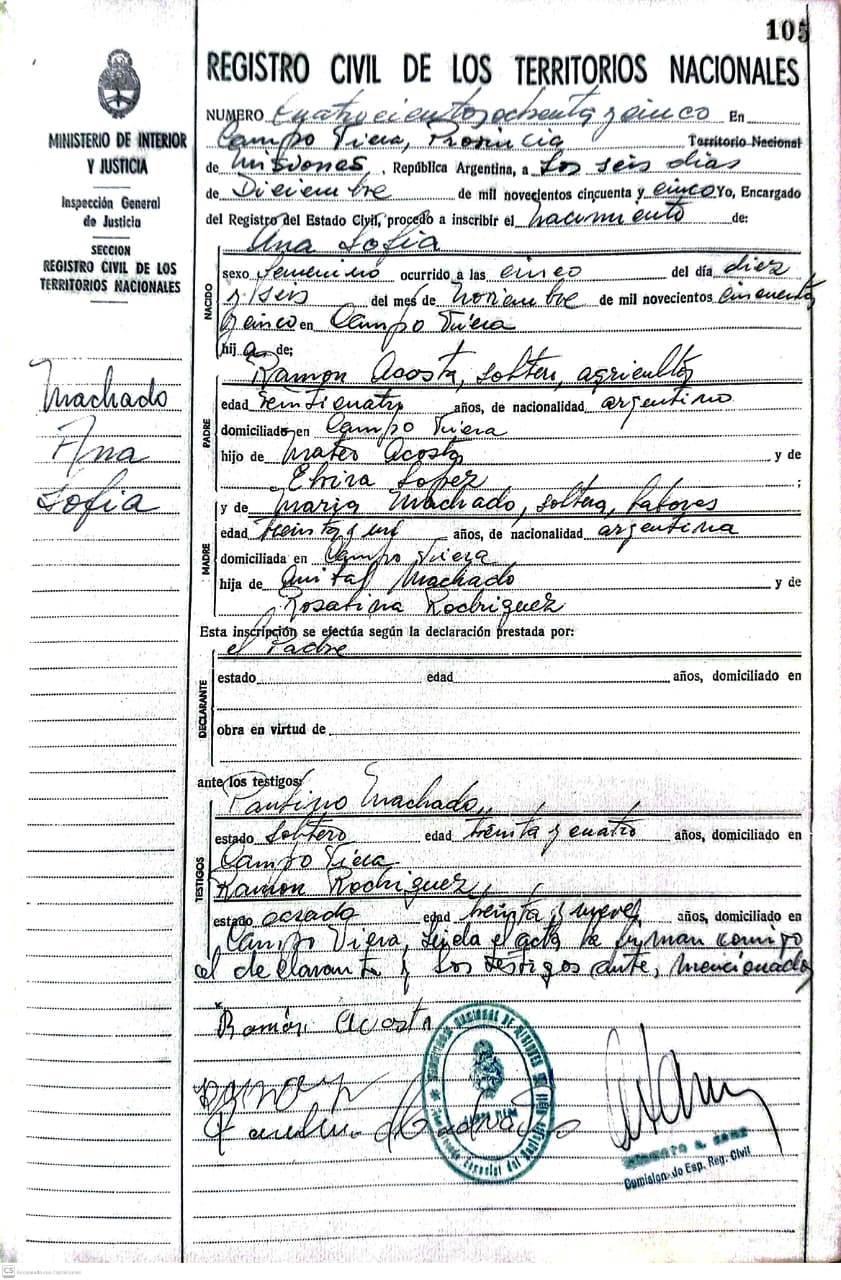 105
REGISTRO CIVIL DE LOS TERRITORIOS NACIONALES
MINISTERIO DE INTERIOR
Y JUSTICIA
Inspección General
de Justicia
SECCION
REGISTRO CIVIL DE LOS
TERRITORIOS NACIONALES
Machado
Ana
Sofia
NUMERO Cuatrocientos ochenta y cinco En
Campo Viera, Provincia Territorio Nacional
de Misiones, República Argentina, a los seis dias
de Diciembre de mil novecientos cincuenta y cinco Yo, Encargado
del Registro del Estado Civil, procedo a inscribir el nacimiento de:
Ana Sofia
NACIDO
sexo femenino ocurrido a las cinco del día diez
y seis del mes de Noviembre de mil novecientos cincuenta
y cinco en Campo Viera
hija de;
PADRE
Ramon Acosta, soltero, agricultor
edad veinticuatro años, de nacionalidad argentino
domiciliado en Campo Viera
hijo de Mateo Acosta y de
Elvira Lopez ;
y de Maria Machado, soltera, labores
MADRE
edad treinta y un años, de nacionalidad argentina
domiciliada en Campo Viera
hija de Machado y de
Rodriguez
Esta inscripción se efectúa según la declaración prestada por:
el Padre
DECLARANTE
estado edad años, domiciliado en
obra en virtud de
ante los testigos:
TESTIGOS
Machado,
estado soltero edad treinta y cuatro años, domiciliado en
Campo Viera
Ramon Rodriguez,
estado edad treinta y nueve, años, domiciliado en
Campo Viera, el acta la firman comigo
el declarante y los testigos ante, mencionados
Ramón Acosta
Comisionado Esp. Reg. Civil